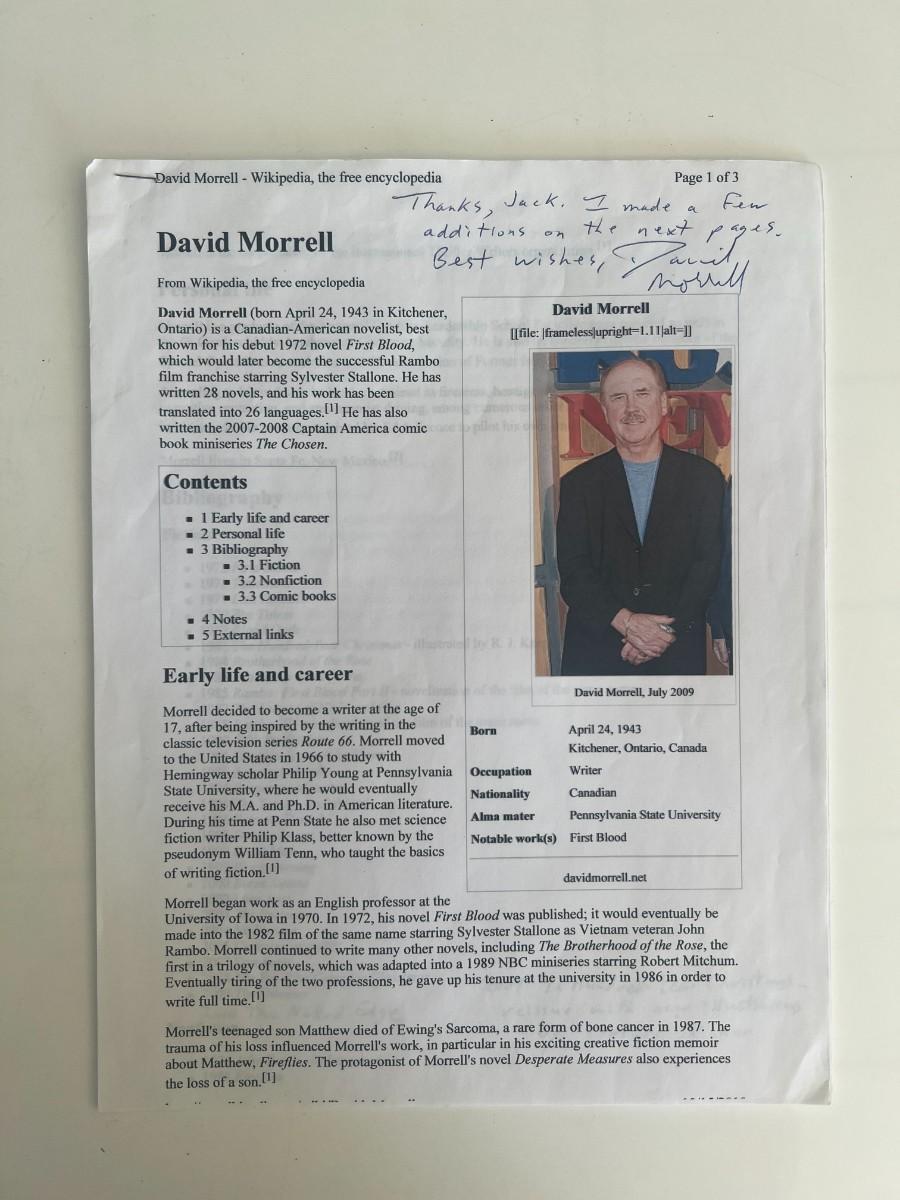 David Morrell - Wikipedia, the free encyclopedia
Page 1 of 3
Thanks, Jack. I made a few
additions on the next pages.
Best wishes, David
Morrell
David Morrell
From Wikipedia, the free encyclopedia
David Morrell (born April 24, 1943 in Kitchener,
Ontario) is a Canadian-American novelist, best
known for his debut 1972 novel First Blood,
which would later become the successful Rambo
film franchise starring Sylvester Stallone. He has
written 28 novels, and his work has been
translated into 26 languages.[1] He has also
written the 2007-2008 Captain America comic
book miniseries The Chosen.
Contents
▪ 1 Early life and career
▪ 2 Personal life
▪ 3 Bibliography
▪ 3.1 Fiction
▪ 3.2 Nonfiction
▪ 3.3 Comic books
▪ 4 Notes
▪ 5 External links
David Morrell
[[file: |frameless|upright=1.11|alt=]]
David Morrell, July 2009
Born April 24, 1943
Kitchener, Ontario, Canada
Occupation Writer
Nationality Canadian
Alma mater Pennsylvania State University
Notable work(s) First Blood
davidmorrell.net
Early life and career
Morrell decided to become a writer at the age of
17, after being inspired by the writing in the
classic television series Route 66. Morrell moved
to the United States in 1966 to study with
Hemingway scholar Philip Young at Pennsylvania
State University, where he would eventually
receive his M.A. and Ph.D. in American literature.
During his time at Penn State he also met science
fiction writer Philip Klass, better known by the
pseudonym William Tenn, who taught the basics
of writing fiction.[1]
Morrell began work as an English professor at the
University of Iowa in 1970. In 1972, his novel First Blood was published; it would eventually be
made into the 1982 film of the same name starring Sylvester Stallone as Vietnam veteran John
Rambo. Morrell continued to write many other novels, including The Brotherhood of the Rose, the
first in a trilogy of novels, which was adapted into a 1989 NBC miniseries starring Robert Mitchum.
Eventually tiring of the two professions, he gave up his tenure at the university in 1986 in order to
write full time.[1]
Morrell's teenaged son Matthew died of Ewing's Sarcoma, a rare form of bone cancer in 1987. The
trauma of his loss influenced Morrell's work, in particular in his exciting creative fiction memoir
about Matthew, Fireflies. The protagonist of Morrell's novel Desperate Measures also experiences
the loss of a son.[1]